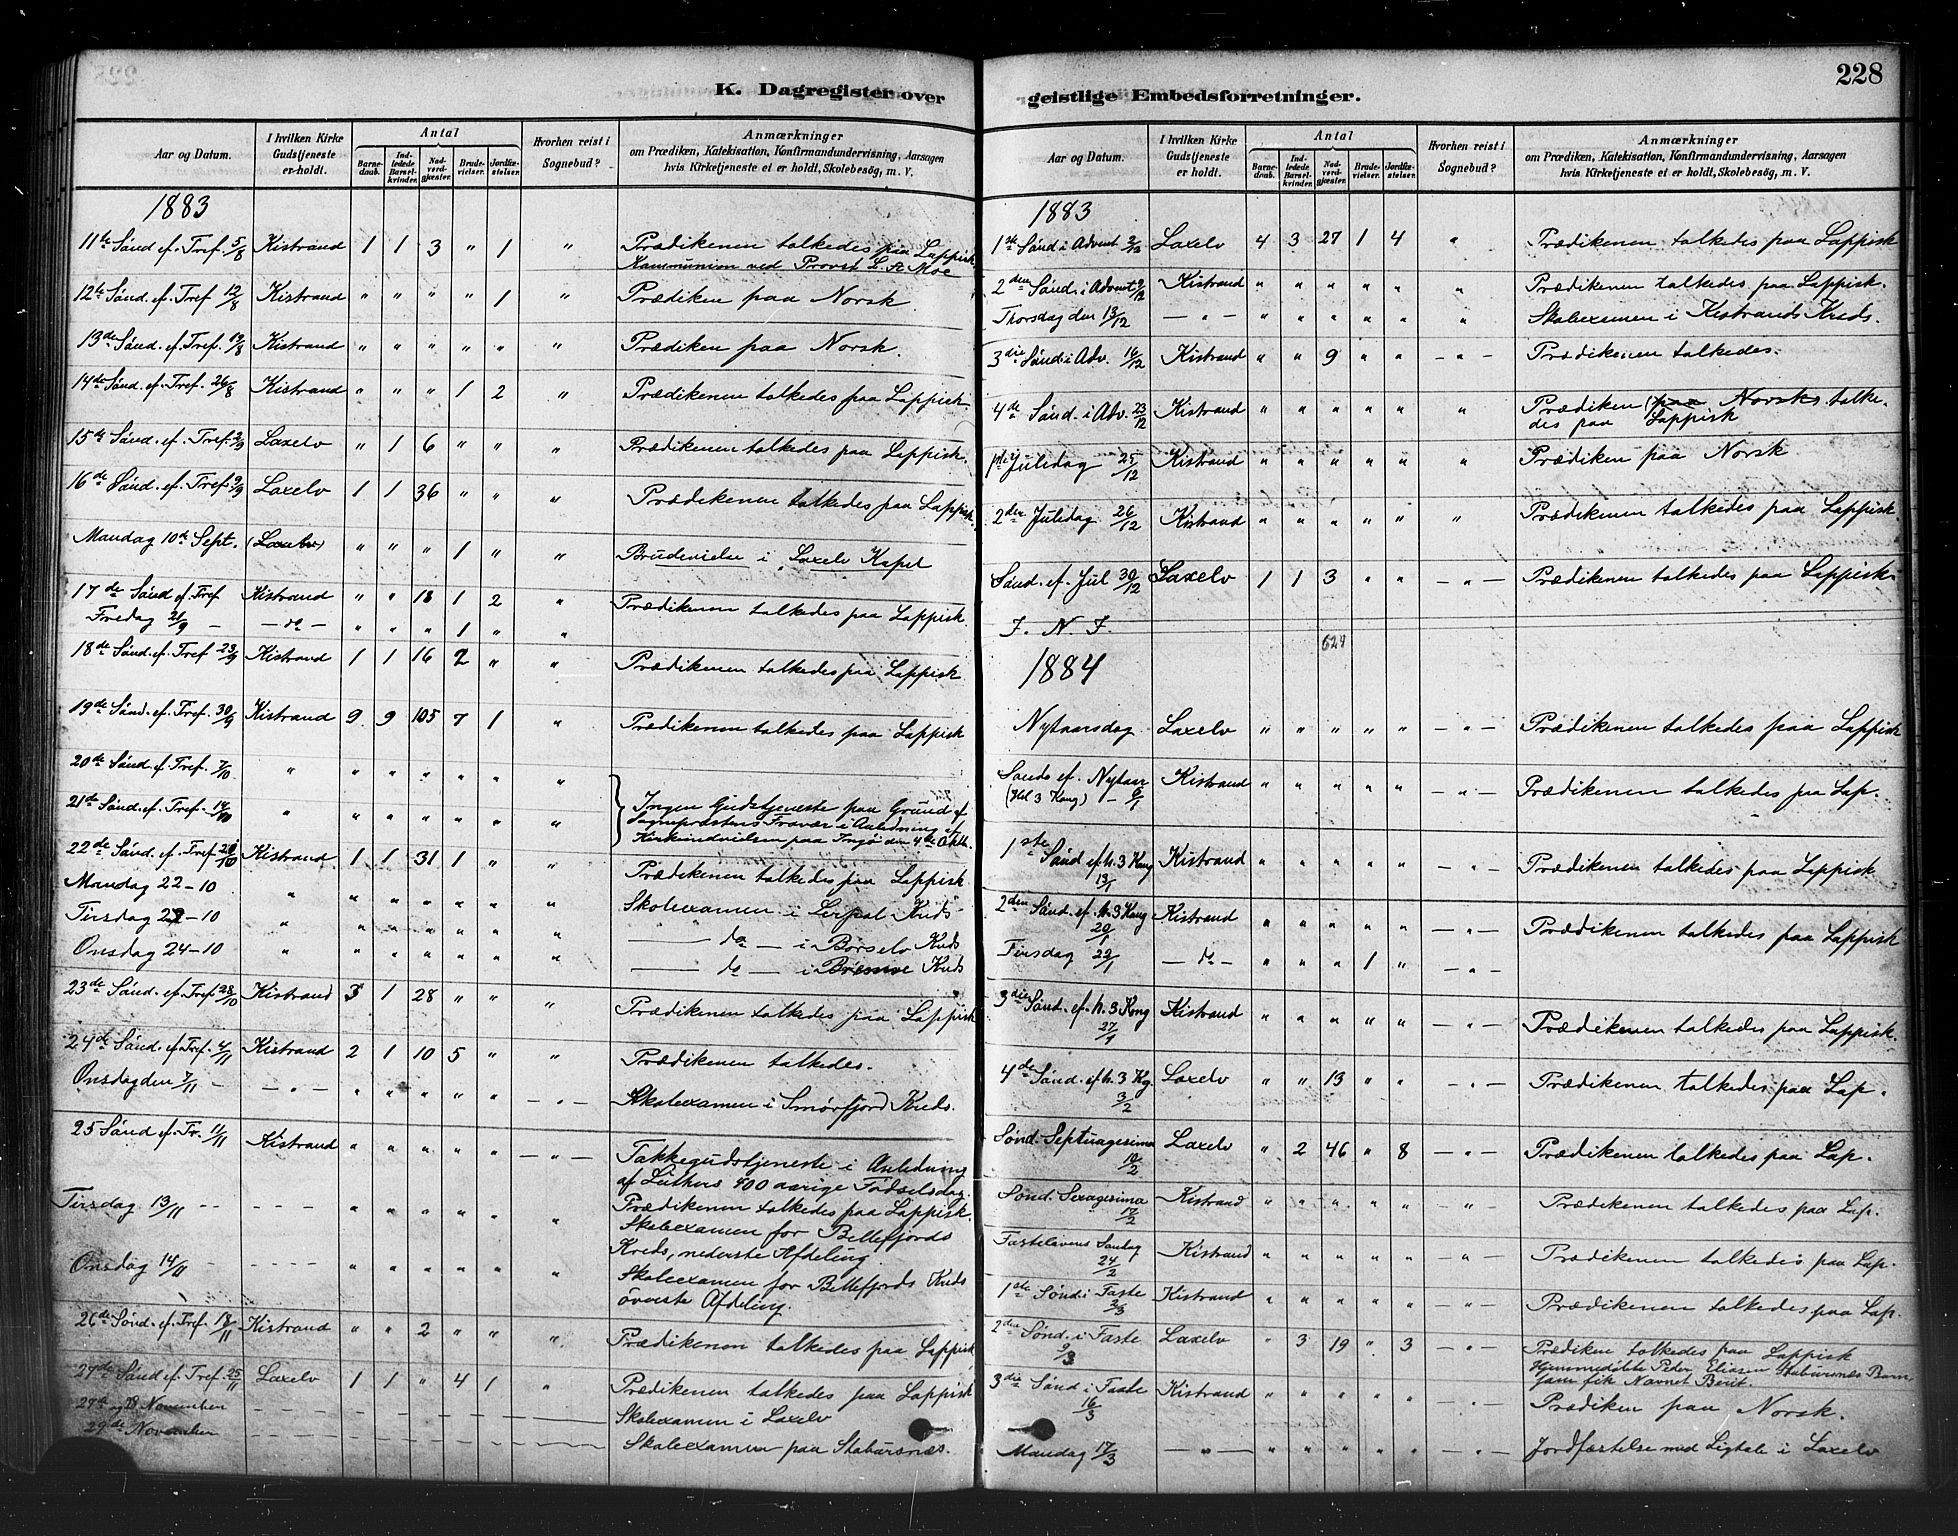 228
K. Dagregister over geistlige Embedsforretninger.
Aar og Datum. | I hvilken Kirke Gudstjeneste er holdt. | Antal | Barnedaab. | Indledede Barselkvinder. | Nadverdgjester. | Brudevielser. | Jordfæstelser. | Hvorhen reist i Sognebud? | Anmærkninger om Prædiken, Katekisation, Konfirmandundervisning, Aarsagen hvis Kirketjeneste ei er holdt, Skolebesøg, m. V.
1883
11te Sønd. ef. Tref. 5/8 Kistrand 1 1 3 " 1 " Prædikenen tolkedes paa Lappisk
Kommunion ved Provst L. St. Moe
12te Sønd. ef. Tref 12/8 Kistrand " " " " 1 " Prædiken paa Norsk
13de Sønd. ef. Tref. 19/8 Kistrand " " " " " " Prædiken paa Norsk.
14de Sønd. ef. Tref. 26/8 Kistrand " " " 1 2 " Prædikenen tolkedes paa Lappisk.
15de Sønd. ef. Tref. 2/9 Laxelv " 1 6 " " " Prædikenen tolkedes paa Lappisk.
16de Sønd. ef. Tref. 9/9 Laxelv 1 1 36 " " " Prædikenen tolkedes paa Lappisk.
Mandag 10de Sept. (Laxelv) " " " 1 " " Brudevielse i Laxelv Kapel
17de Sønd. ef. Tref Kistrand " " 18 1 2 " Prædikenen tolkedes paa Lappisk.
Fredag 21/9 — — do — " " " 1 " "
18de Sønd. ef. Tref 23/9 Kistrand 1 1 16 2 " " Prædikenen tolkedes paa Lappisk.
19de Sønd. ef. Tref. 30/9 Kistrand 9 9 105 7 1 " Prædikenen tolkedes paa Lappisk
20de Sønd. ef. Tref. 7/10 " " " " " " "
21de Sønd. ef. Tref. 14/10 " " " " " " " } Ingen Gudstjeneste paa Grund af
Sognepræstens Fravær i Anledning af
Kirkeindvielsen paa Ingø den 4de Oktb.
22de Sønd. ef. Tref. 21/10 Kistrand 1 1 31 1 " " Prædikenen tolkedes paa Lappisk
Mandag 22-10 " " " " " " " Skoleexamen i Lerpol Kreds
Tirsdag 23-10 " " " " " " " — do — i Børselv Kreds
Onsdag 24-10 " " " " " " " — do — i Brenne Kreds
23de Sønd. ef. Tref. 28/10 Kistrand 3 1 28 " " " Prædikenen tolkedes paa Lappisk
24de Sønd. ef. Tref. 4/11 Kistrand 2 1 10 5 " " Prædikenen tolkedes.
Onsdag den 7/11 — — " — " " " " " — " — Skoleexamen i Smørfjord Kreds.
25 Sønd ef. Tr. 11/11 Kistrand " " " " " — " — Takkegudstjeneste i Anledning
af Luthers 400 aarige Fødselsdag.
Prædikenen tolkedes paa Lappisk.
Tirsdag 13/11 - - - - - " " " " " " Skoleexamen for Billefjords
Kreds, nederste Afdeling.
Onsdag 14/11 - - - - - " " " " " " Skoleexamen for Billefjords Kreds
øverste Afdeling.
26de Sønd. ef. Tref. 18/11 Kistrand " " 2 " " " Prædikenen tolkedes paa Lappisk
27de Sønd. ef. Tref 25/11 Laxelv 1 1 " 4 1 " Prædikenen tolkedes paa Lappisk
27de og 28 November — — — — — — Skoleexamen i Laxelv
29de November — — — — — — Skoleexamen paa Stabursnæs.
Aar og Datum. | I hvilken Kirke Gudstjeneste er holdt. | Antal | Barnedaab. | Indledede Barselkvinder. | Nadverdgjester. | Brudevielser. | Jordfæstelser. | Hvorhen reist i Sognebud? | Anmærkninger om Prædiken, Katekisation, Konfirmandundervisning, Aarsagen hvis Kirketjeneste ei er holdt, Skolebesøg, m. V.
1883
1ste Sønd i Advent 2/12 Laxelv 4 3 27 1 4 " Prædikenen tolkedes paa Lappisk
2den Sønd. i Advent 9/12 Kistrand " " " " " " Prædikenen tolkedes paa Lappisk.
Thorsdag den 13/12 — " — " " " " " " Skoleexamen i Kistrands Kreds.
3die Sønd i Adv. 16/12 Kistrand " " 9 " " — " — Prædikenen tolkedes.
4de Sønd. i Adv. 23/12 Kistrand " " " " " " Prædiken (paa Norsk) tolke-
des paa Lappisk
1ste Juledag 25/12 Kistrand " " " " " " Prædiken paa Norsk
2den Juledag 26/12 Kistrand " " " " " " Prædikenen tolkedes paa Lappisk.
Sønd. ef. Jul 30/12 Laxelv 1 1 3 " " — " — Prædikenen tolkedes paa Lappisk.
I. N. I.
624
1884
Nytaarsdag Laxelv " " " " " — " — Prædikenen tolkedes paa Lappisk
Sønd. ef. Nytaar Kistrand " " " " " — " — Prædikenen tolkedes paa Lap.
(Hel 3 Kong) — 6/1
1ste Sønd ef. h. 3 Kong 13/1 Kistrand " " " " " — " — Prædikenen tolkedes paa Lappisk
2den Sønd. ef. h. 3 Kong 20/1 Kistrand " " " " " — " — Prædikenen tolkedes paa Lappisk
Tirsdag 22/1 — do — " " " 1 " — " —
3die Sønd. ef. h. 3 Kong 27/1 Kistrand " " " " " — " — Prædikenen tolkedes paa Lappisk.
4de Sønd. ef. h. 3 Kg. 3/2 Laxelv " " 13 " " — " — Prædikenen tolkedes paa Lap.
Sønd. Septuagesima 10/2 Laxelv " 2 46 " 8 — " — Prædikenen tolkedes paa Lap.
Sønd. Sexagesima 17/2 Kistrand " " " " " — " — Prædikenen tolkedes paa Lap.
Fastelavens Søndag 24/2 Kistrand " " " " " " Prædikenen tolkedes paa Lap.
1ste Sønd i Faste 2/3 Kistrand " " " " " — " — Prædikenen tolkedes paa Lap.
2den Sønd i Faste 9/3 Laxelv " 3 19 " 3 — " — Prædiken tolkedes paa Lappisk
Hjemmedøbte Peder Eliasen Stabursnæs Barn
som fik Navnet Berit.
3die Sønd i Faste 16/3 Kistrand " " " " " — " — Prædiken paa Norsk.
Mandag 17/3 — " — " " " " " — " — Jordfæstelse med Ligtale i Laxelv